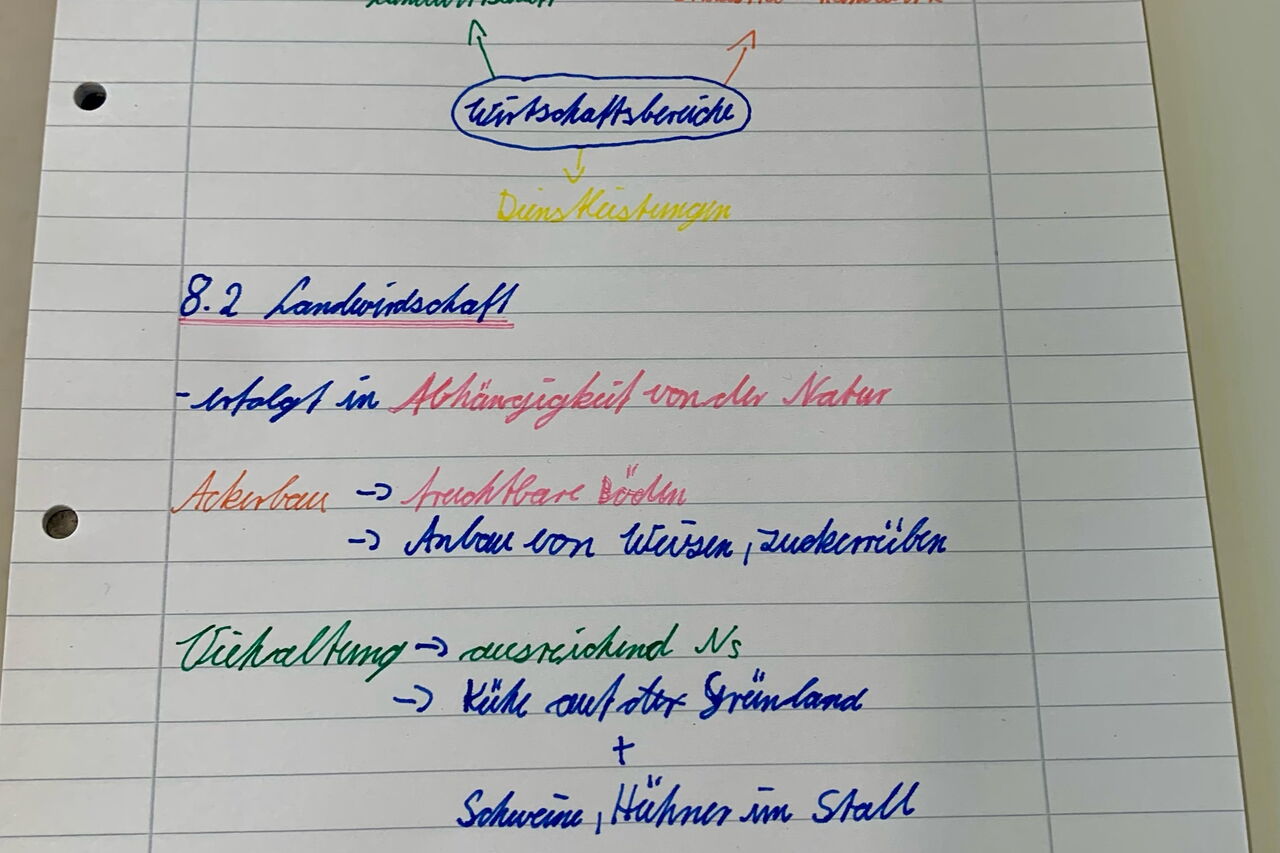 Wirtschaftsbereiche
Dienstleistungen
8.2 Landwirdschaft
- erfolgt in Abhängigkeit von der Natur
Ackerbau -> fruchtbare Böden
-> Anbau von Weizen, Zuckerrüben
Viehaltung -> ausreichend Ns
-> Kühe auf der Grünland
+
Schweine, Hühner im Stall